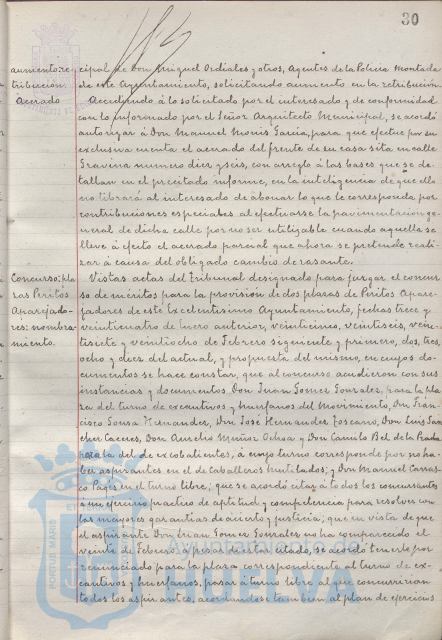 30
aumento re-
tribución
Acerado
cipal de Don Miguel Ordiales y otros, Agentes de la Policía Montada
de este Ayuntamiento, solicitando aumento en la retribución.
Accediendo á lo solicitado por el interesado y de conformidad
con lo informado por el Señor Arquitecto Municipal, se acordó
autorizar á Don Manuel Monis García, para que efectue por su
exclusiva cuenta el acerado del frente de su casa sita en calle
Gravina numero diez y seis, con arreglo á las bases que se de-
tallan en el precitado informe, en la inteligencia de que ello
no librará al interesado de abonar lo que le corresponda por
contribuciones especiales al efectuarse la pavimentación ge-
neral de dicha calle por no ser utilizable cuando aquella se
lleve á efecto el acerado parcial que ahora se pretende reali-
zar á causa del obligado cambio de rasante.
Concurso: pla-
zas Peritos
Aparejado-
res: nombra-
miento.
Vistas actas del tribunal designado para juzgar el concur-
so de méritos para la provisión de dos plazas de Peritos Apare-
jadores de este Excelentísimo Ayuntamiento, fechas trece y
veinticuatro de Enero anterior, veinticinco, veintiseis, vein-
tisiete y veintiocho de Febrero siguiente y primero, dos, tres,
ocho y diez del actual, y propuesta del mismo, en cuyos do-
cumentos se hace constar, que al concurso acudieron con sus
instancias y documentos Don Juan Gomez Gonzalez, para la pla-
za del turno de excautivos y huerfanos del Movimiento, Don Fran-
cisco Sousa Hernandez, Don José Hernandez Toscano, Don Luis San-
chez Caceres, Don Aurelio Muñoz Ochoa y Don Camilo Bel de la Prada
para la del de excobatientes, á cuyo turno corresponde por no ha-
ber aspirantes en el de Caballeros Mutilados, y Don Manuel Carras-
co Pagés en el turno libre, que se acordó citar á todos los concursantes
a un ejercicio practico de aptitud y competencia para resolver con
las mayores garantias de acierto y justicia, que en vista de que
el aspirante Don Juan Gomez Gonzalez no ha comparecido el
veinte de Febrero á pesar de estar citado, se acordó tenerle por
renunciado para la plaza correspondiente al turno de ex-
cautivos y huerfanos, pasar á turno libre al que concurririan
todos los aspirantes, acordandose tambien el plan de ejercicios
PORTUS MARIS